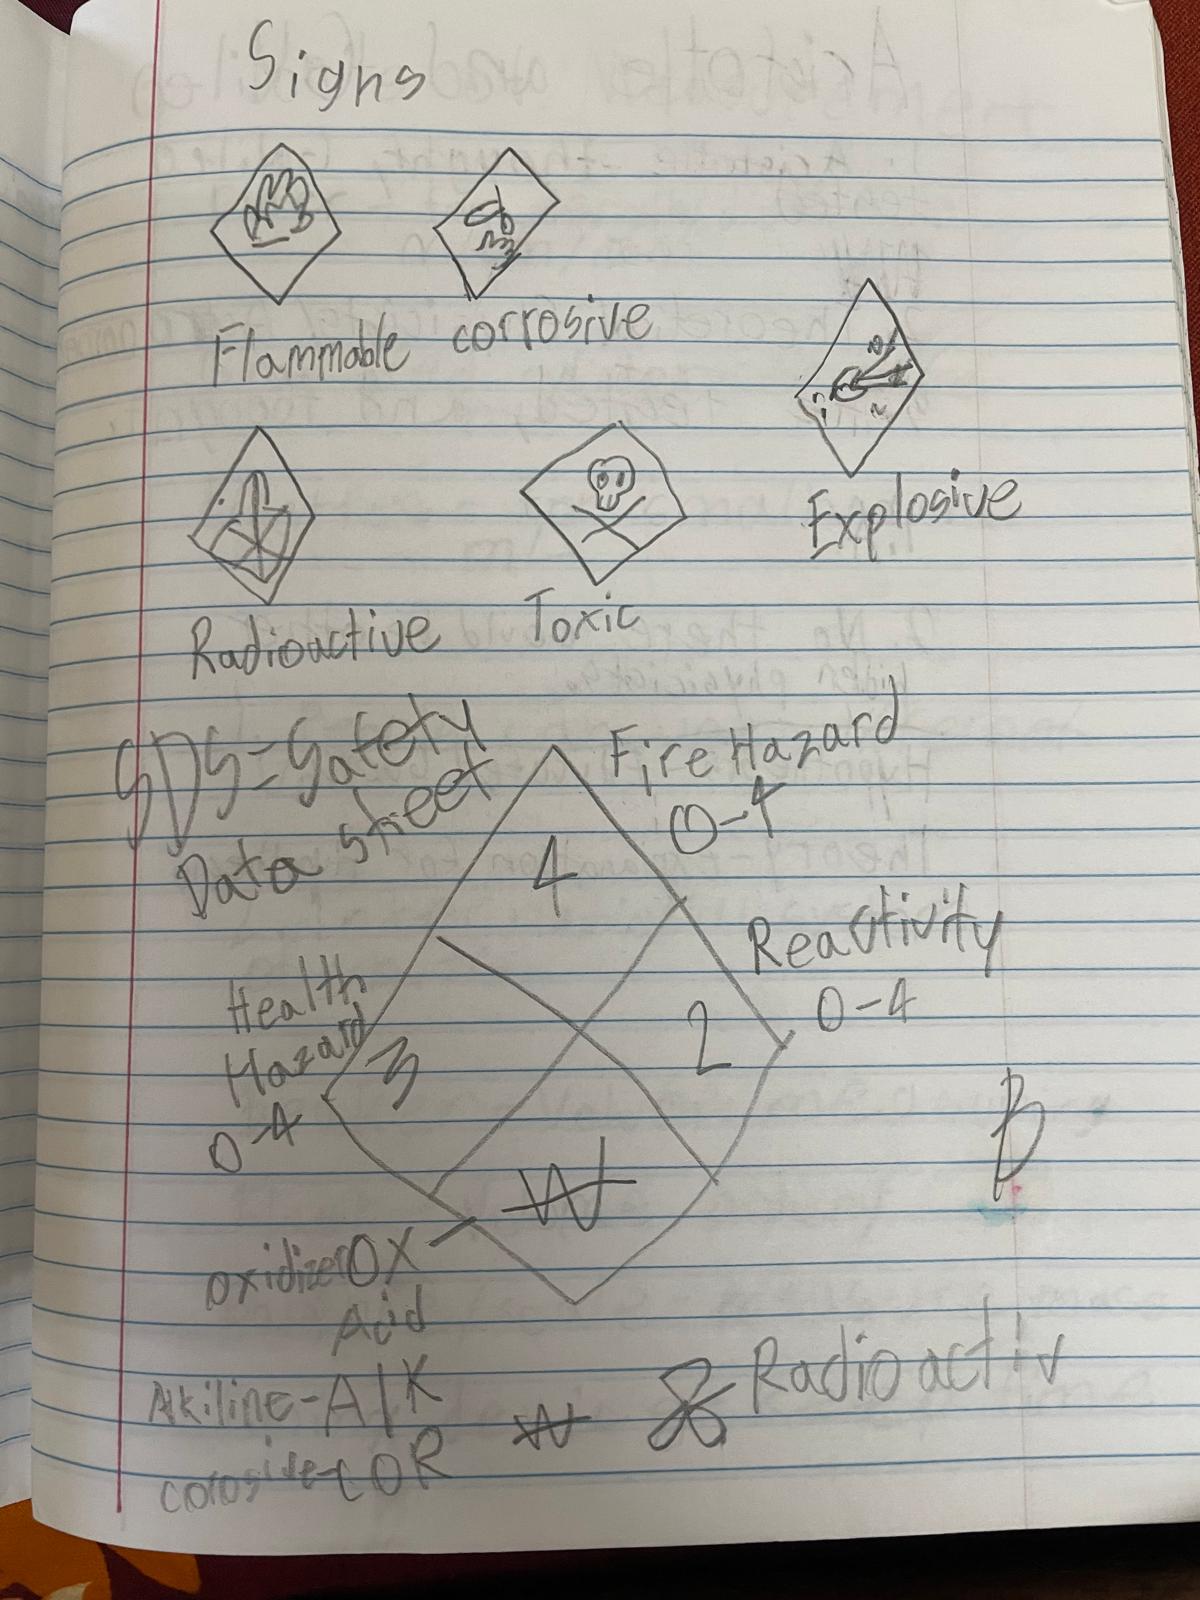 Signs
Flammable corrosive
Explosive
Radioactive Toxic
SDS=Safety
Data sheet
Fire Hazard
0-4
4
Reactivity
0-4
Health
Hazard
0-4
3
2
W
B
oxidizer OX
Acid
Alkiline-AlK
W
Radioactiv
corosive-COR